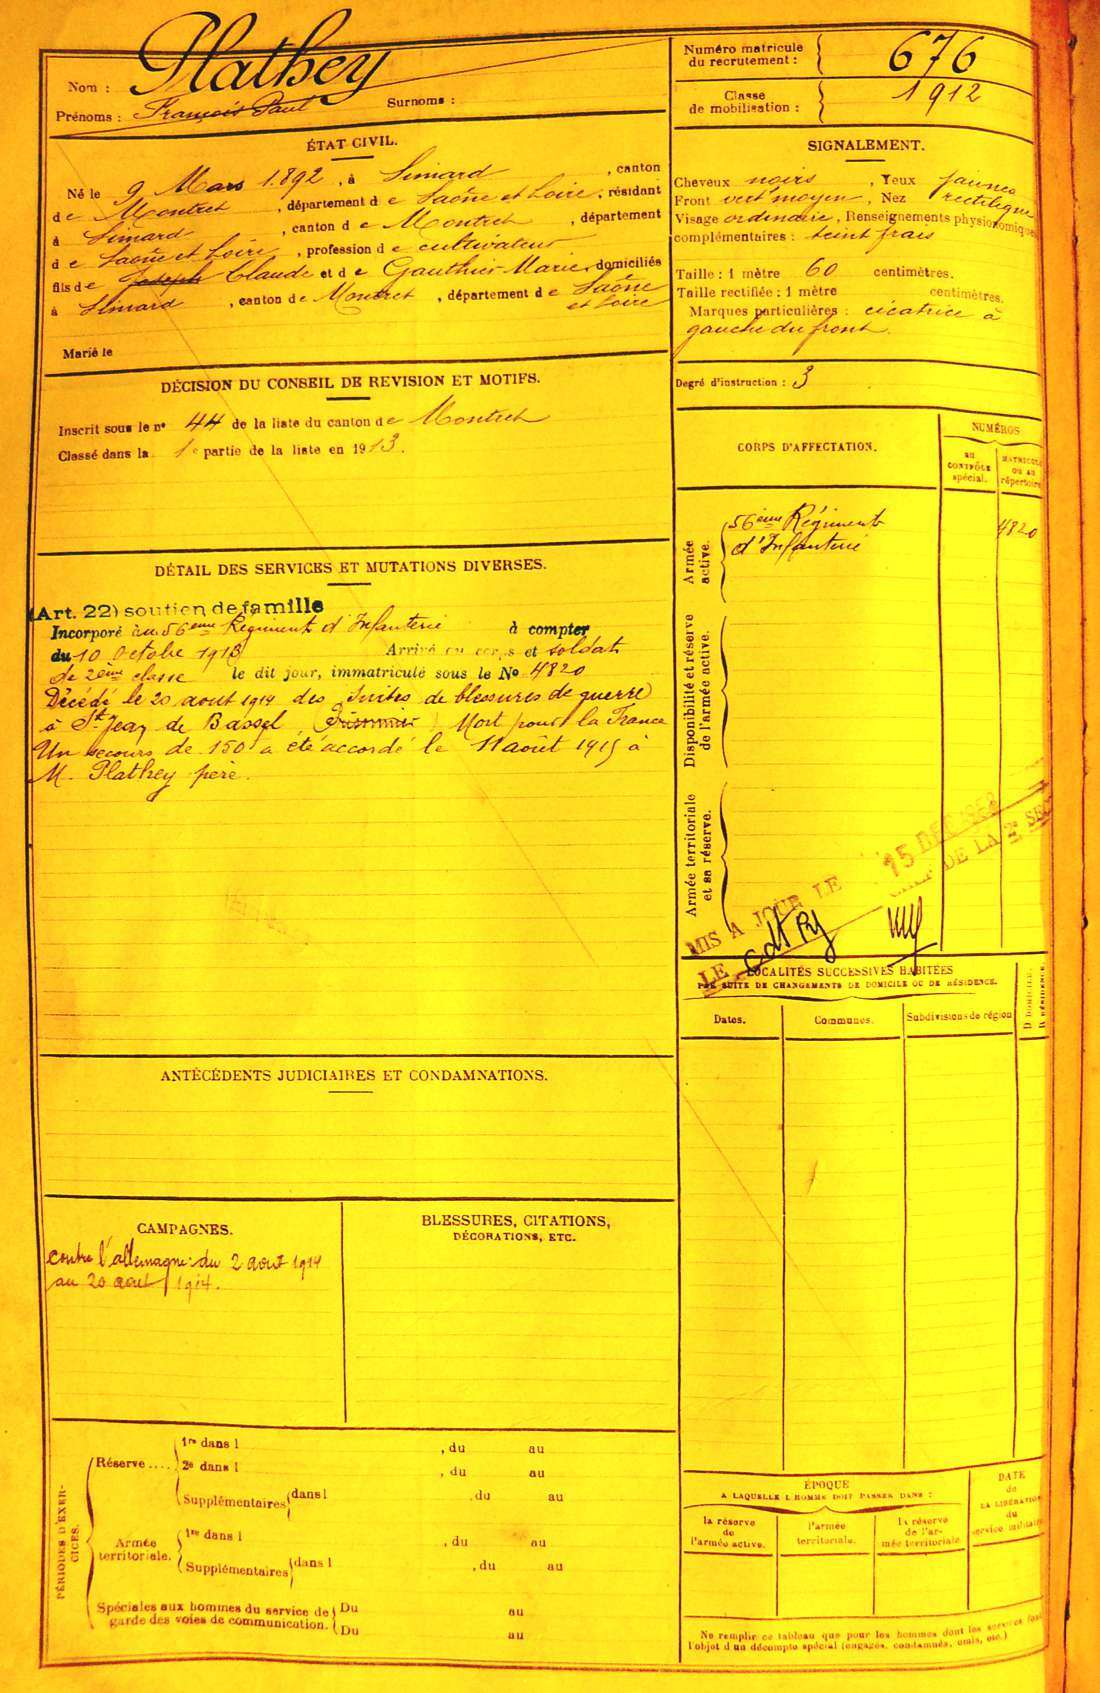 Nom : Plathey
Prénoms : François Paul Surnoms :
Numéro matricule du recrutement : 676
Classe de mobilisation : 1912
ÉTAT CIVIL.
Né le 9 Mars 1892, à Simard, canton
de Montret, département de Saône et Loire, résidant
à Simard, canton de Montret, département
de Saône et Loire, profession de cultivateur
fils de Joseph Claude et de Gauthier Marie, domiciliés
à Simard, canton de Montret, département de Saône
et Loire
Marié le
SIGNALEMENT.
Cheveux noirs, Yeux jaunes
Front vert moyen, Nez rectiligne
Visage ordinaire, Renseignements physionomiques
complémentaires : teint frais
Taille : 1 mètre 60 centimètres.
Taille rectifiée : 1 mètre centimètres.
Marques particulières : cicatrice à
gauche du front.
Degré d'instruction : 3
DÉCISION DU CONSEIL DE REVISION ET MOTIFS.
Inscrit sous le n° 44 de la liste du canton de Montret
Classé dans la 1e partie de la liste en 1913.
DÉTAIL DES SERVICES ET MUTATIONS DIVERSES.
(Art. 22) soutien de famille
Incorporé au 56eme Régiment d'Infanterie à compter
du 10 Octobre 1913 Arrivé au corps et soldat
de 2ème classe le dit jour, immatriculé sous le No 4820
Décédé le 20 aout 1914 des suites de blessures de guerre
à St Jean de Bassel, (Prisonnier) Mort pour la France
Un secours de 150f a été accordé le 11 août 1915 à
M. Plathey père.
CORPS D'AFFECTATION.
NUMÉROS
au CONTRÔLE spécial.
MATRICULE OU AU répertoire
Armée active.
56ème Régiment
d'Infanterie
4820
Disponibilité et réserve de l'armée active.
Armée territoriale et sa réserve.
MIS A JOUR LE 15 DEC 1952
LE CHEF DE LA 2e SEC
LOCALITÉS SUCCESSIVES HABITÉES
PAR SUITE DE CHANGEMENTS DE DOMICILE OU DE RÉSIDENCE.
Dates. Communes. Subdivisions de région
D DOMICILE.
R RÉSIDENCE.
ANTÉCÉDENTS JUDICIAIRES ET CONDAMNATIONS.
CAMPAGNES.
contre l'allemagne : du 2 aout 1914
au 20 aout 1914.
BLESSURES, CITATIONS,
DÉCORATIONS, ETC.
PÉRIODES D'EXERCICES.
Réserve....
1re dans l , du au
2e dans l , du au
Supplémentaires dans l , du au
Armée territoriale.
1re dans l , du au
Supplémentaires dans l , du au
Spéciales aux hommes du service de garde des voies de communication.
Du au
Du au
ÉPOQUE
A LAQUELLE L'HOMME DOIT PASSER DANS :
la réserve de l'armée active.
l'armée territoriale.
la réserve de l'armée territoriale
DATE de LA LIBÉRATION du service militaire
Ne remplir ce tableau que pour les hommes dont les services font
l'objet d'un décompte spécial (engagés, condamnés, omis, etc.)